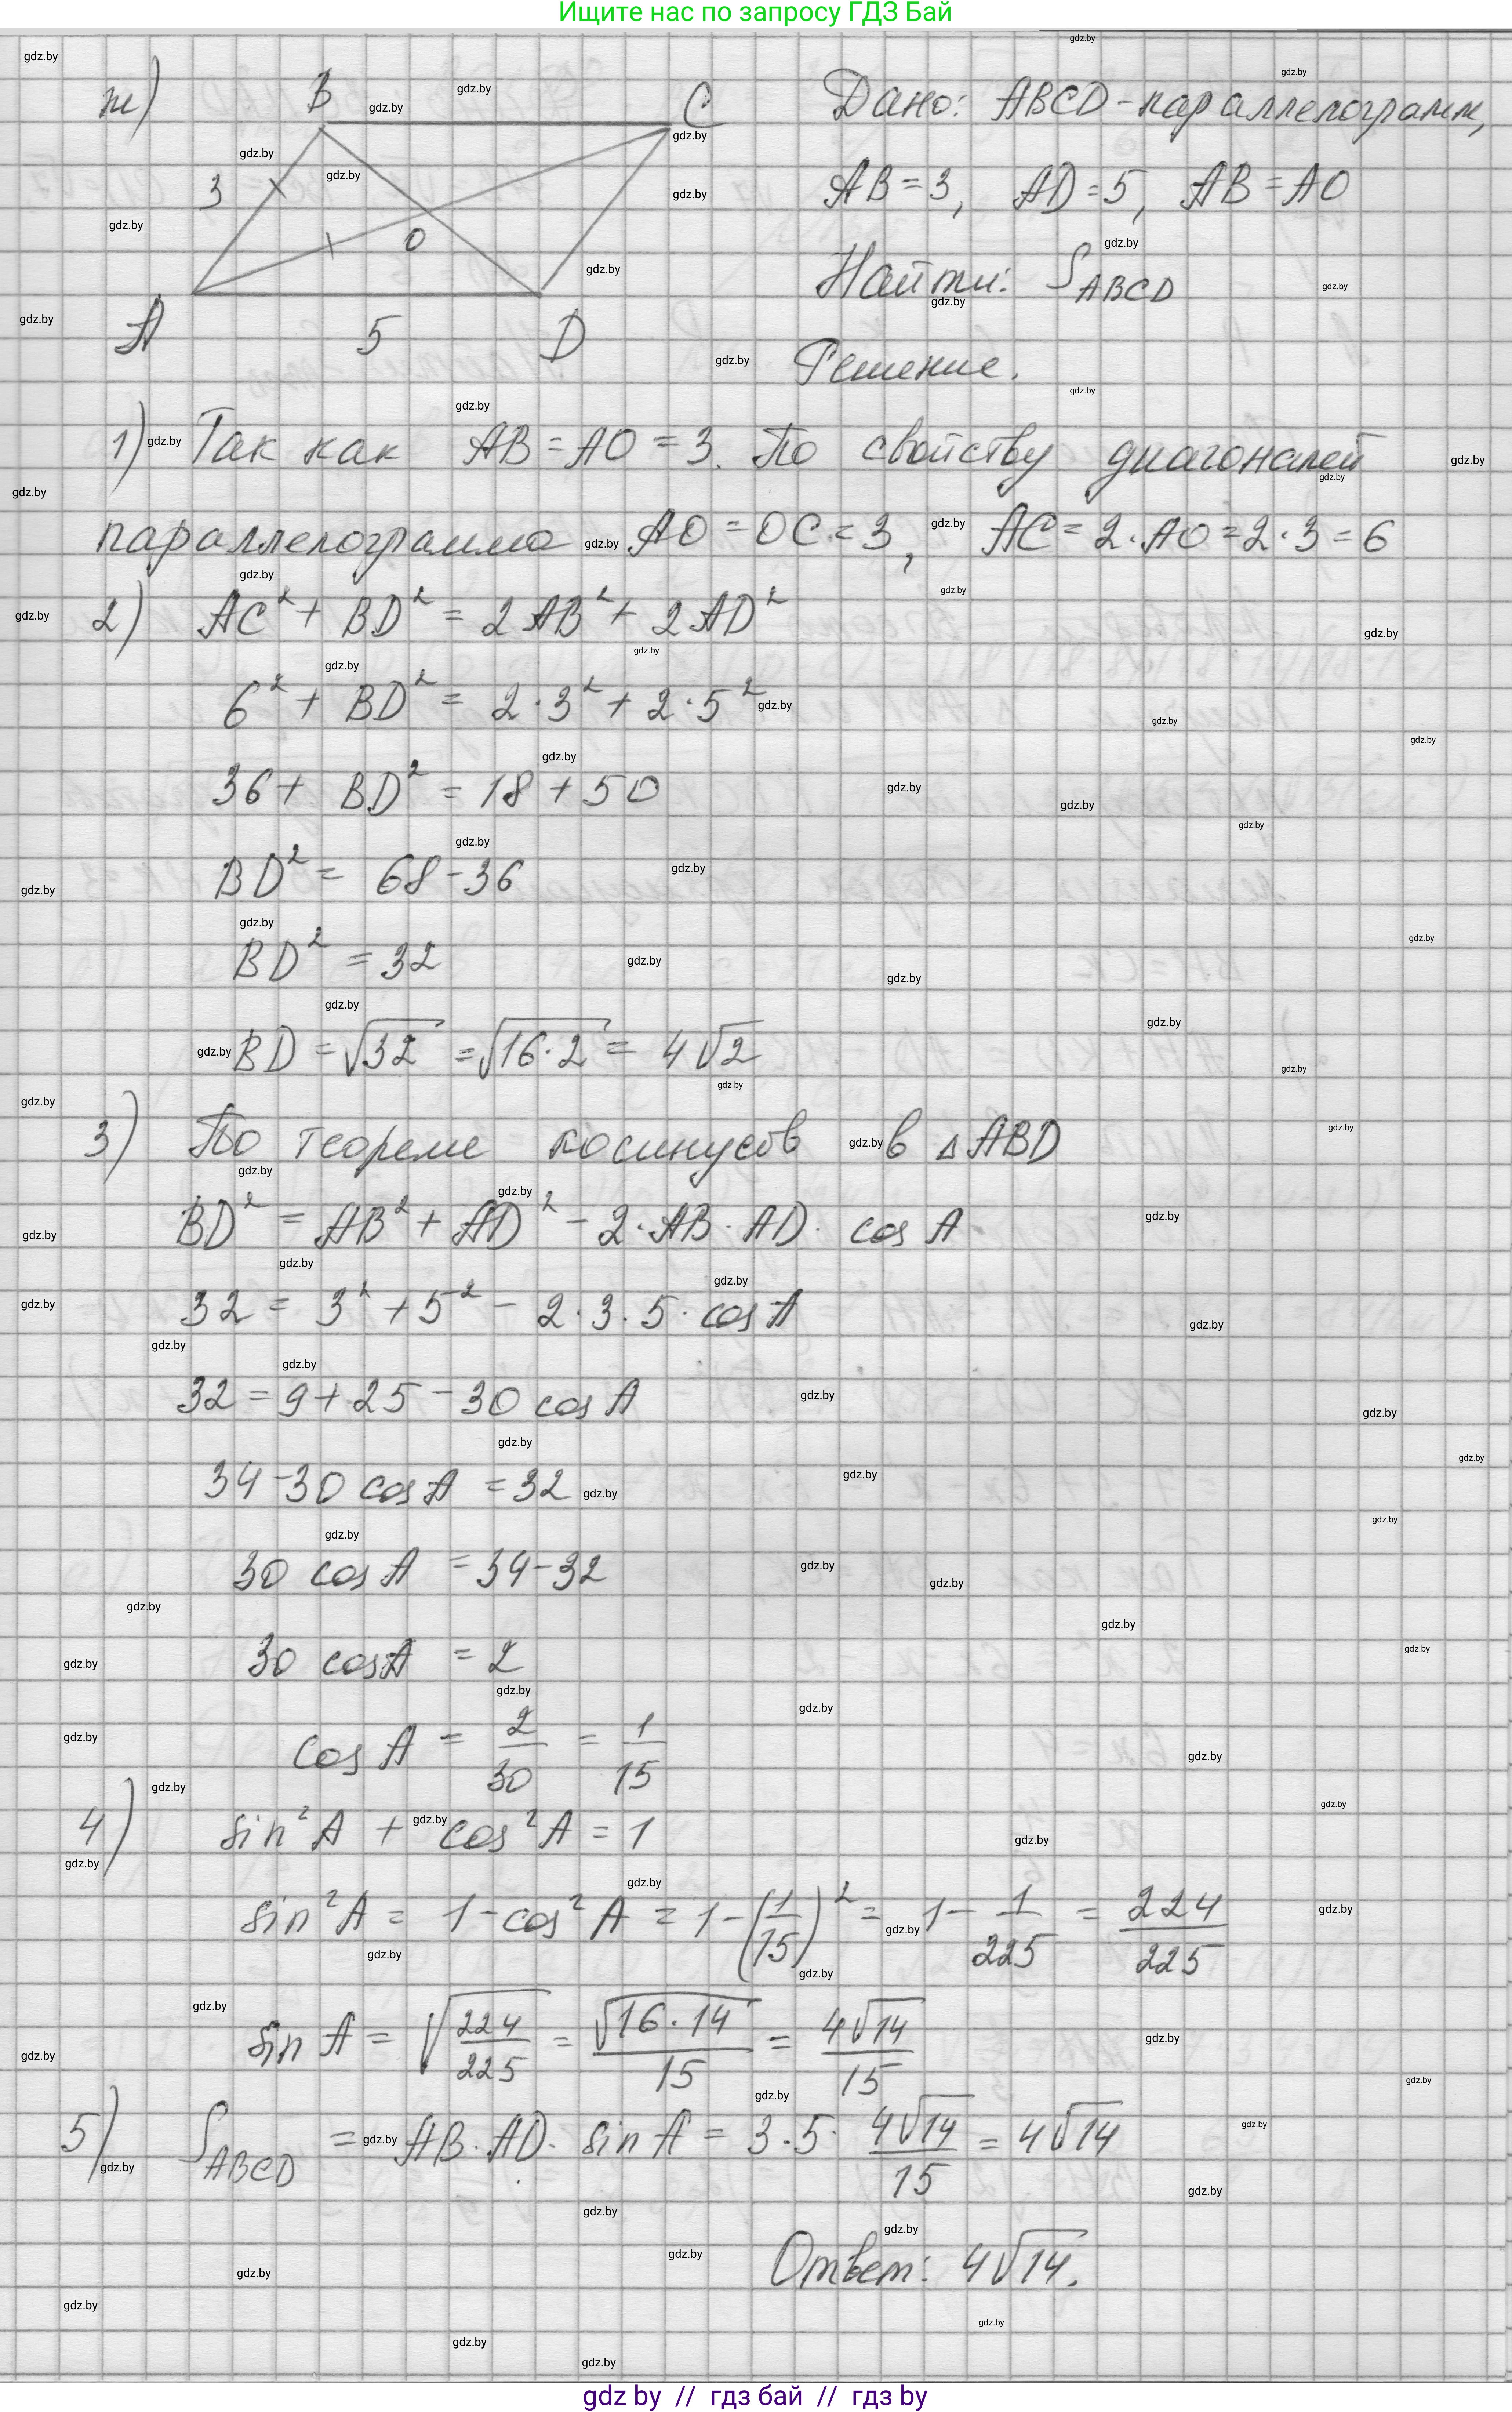 Ищите нас по запросу ГДЗ Бай
ж) B C
3 O
A 5 D
Дано: ABCD - параллелограмм,
AB = 3, AD = 5, AB = AO
Найти: S_ABCD
Решение.
1) Так как AB = AO = 3. По свойству диагоналей
параллелограмма AO = OC = 3, AC = 2·AO = 2·3 = 6
2) AC² + BD² = 2AB² + 2AD²
6² + BD² = 2·3² + 2·5²
36 + BD² = 18 + 50
BD² = 68 - 36
BD² = 32
BD = √32 = √16·2 = 4√2
3) По теореме косинусов в △ABD
BD² = AB² + AD² - 2·AB·AD·cos A
32 = 3² + 5² - 2·3·5·cos A
32 = 9 + 25 - 30 cos A
34 - 30 cos A = 32
30 cos A = 34 - 32
30 cos A = 2
cos A = 2/30 = 1/15
4) sin²A + cos²A = 1
sin²A = 1 - cos²A = 1 - (1/15)² = 1 - 1/225 = 224/225
sin A = √224/225 = √16·14/15 = 4√14/15
5) S_ABCD = AB·AD·sin A = 3·5·4√14/15 = 4√14
Ответ: 4√14.
gdz by // гдз бай // гдз by